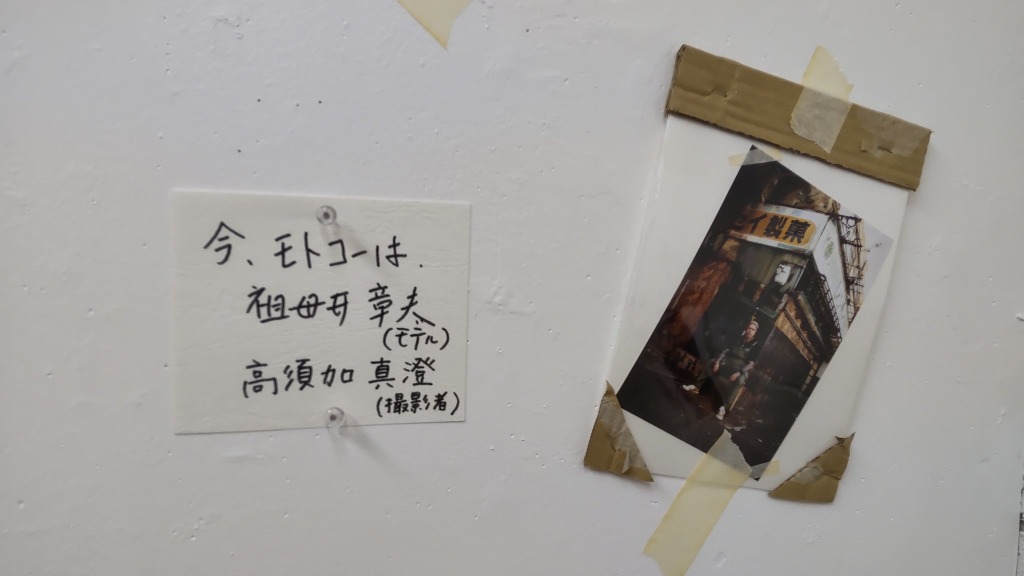 今、モトコーは.
祖母井 章夫
(モデル)
高須加 真澄
(撮影者)
イ製菓